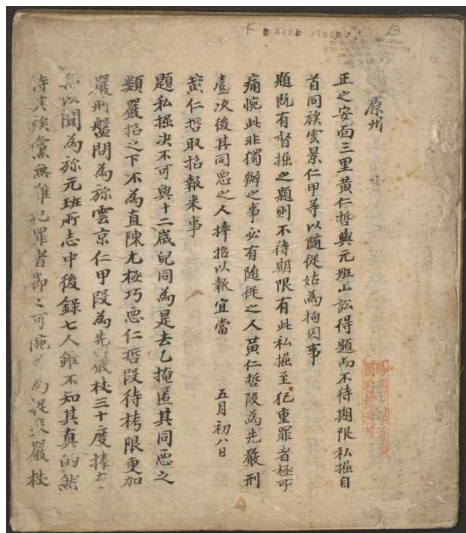 原州
正之安面三里黃仁哲與元班山訟得題而不待期限私掘自
首同族雲景仁甲等以隨從姑為拘囚事
題既有督掘之題則不待期限有此私掘至犯重罪者極可
痛惋此非獨辦之事必有随從之人黃仁哲段為先嚴刑
壹次後其同惡之人捧招以報宜當 五月初八日
黃仁哲取招報來事
題私掘决不可與十二歲兒同為是去乙掩匿其同惡之
類嚴招之下不為直陳尤極巧惡仁哲段待栲限更加
嚴刑盤問為旀雲京仁甲段為先嚴杖三十度捧
以聞為旀元班所志中後錄七人雖不知其真的然
族黨無難犯罪者節之可 嚴杖